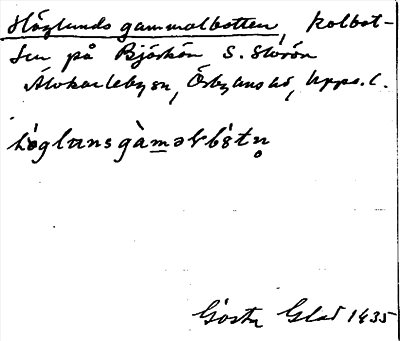 Höglunds gammalbotten, kolbot-
ten på Björkön S. Storön
Älvkarleby sn, Örbyhus hd, Upps. l.
hö́glunsgàmalbòtn̥
Gösta Glad 1935